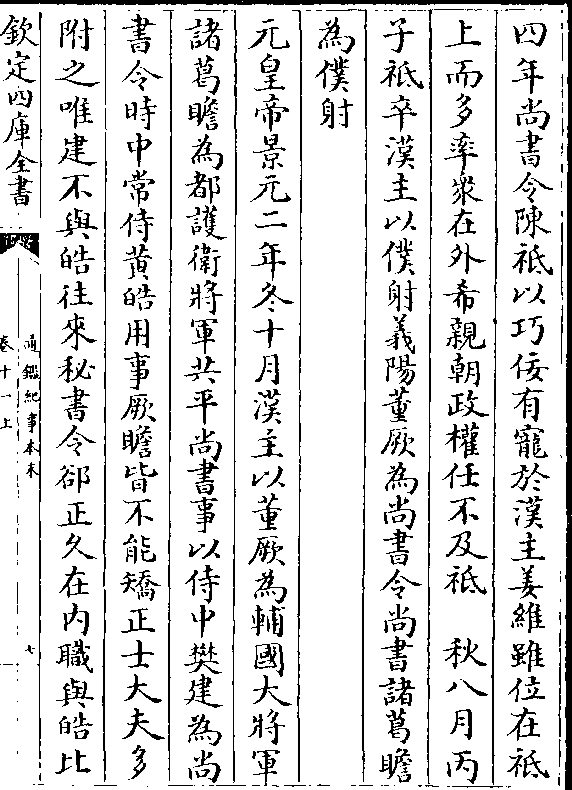 四年尚書令陳祗以巧佞有寵於漢主姜維雖位在祗
上而多率衆在外希親朝政權任不及祗　秋八月丙
子祗卒漢主以僕射義陽董厥為尚書令尚書諸葛瞻
為僕射
元皇帝景元二年冬十月漢主以董厥為輔國大將軍
諸葛瞻為都護衛將軍共平尚書事以侍中樊建為尚
書令時中常侍黄皓用事厥瞻皆不能矯正士大夫多
附之唯建不與皓往來秘書令郤正久在内職與皓比
欽定四庫全書
通鑑紀事本末
卷十一上
七